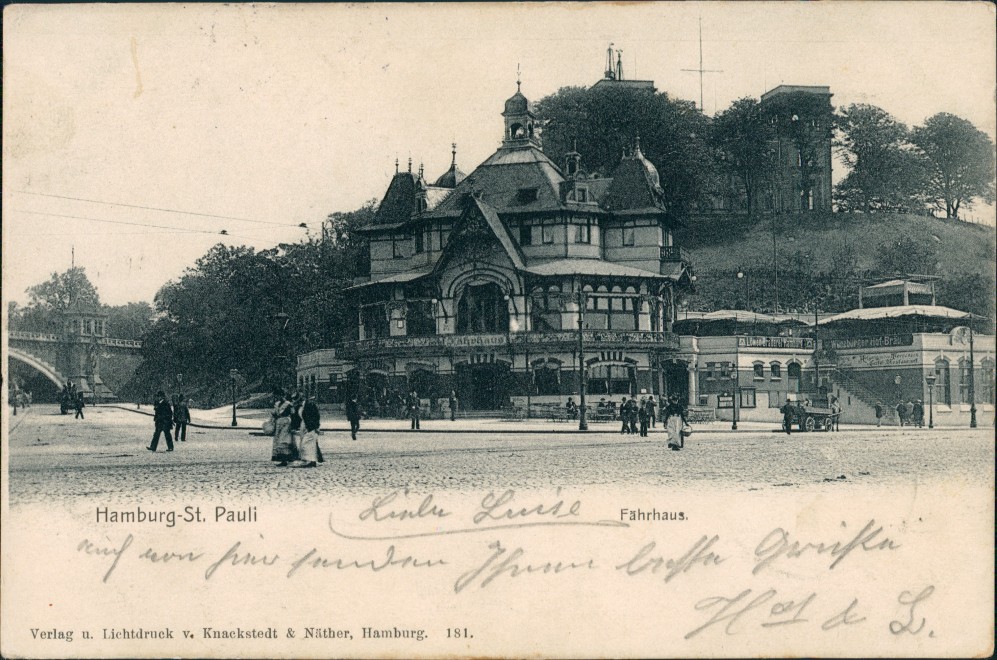 Fährhaus
Hamburg-St. Pauli
Fährhaus.
Liebe Luise
auch von hier senden Ihnen beste Grüße
H & L.
Verlag u. Lichtdruck v. Knackstedt & Näther, Hamburg. 181.